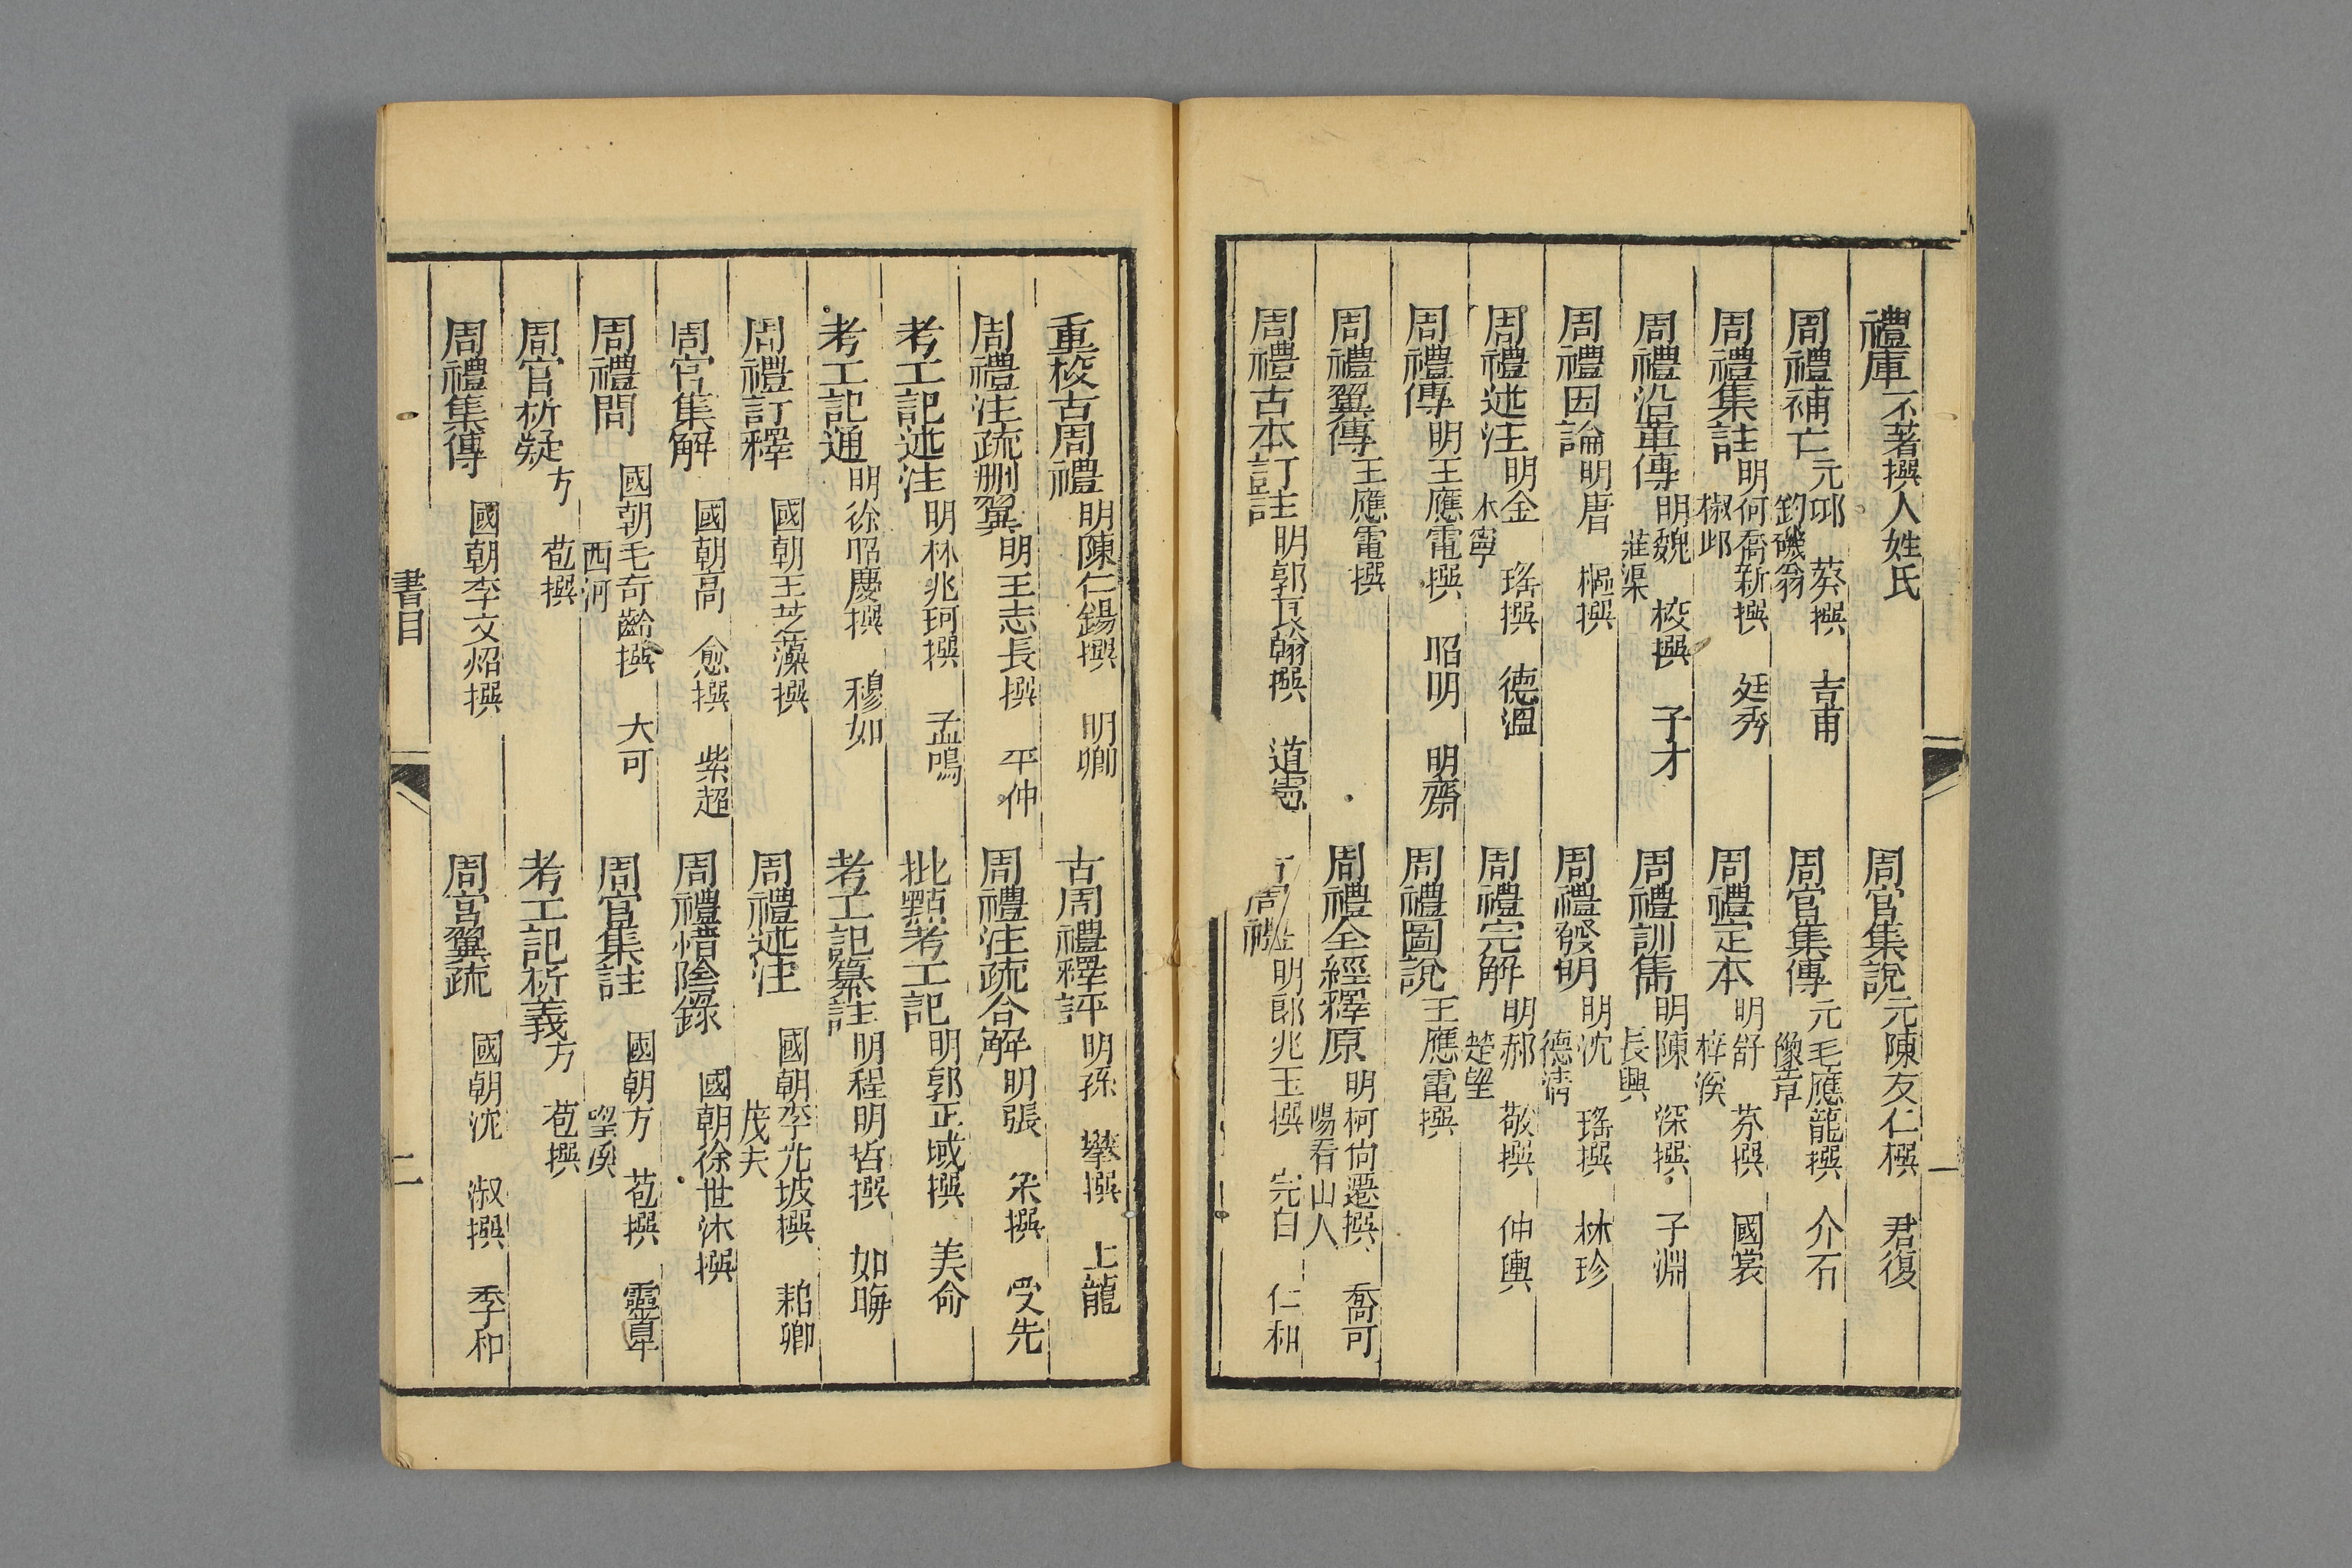 禮庫 不著撰人姓氏
周官集說 元陳友仁撰 君復
周禮補亡 元邱 葵撰 吉甫 釣磯翁
周官集傳 元毛應龍撰 介石
周禮集註 明何喬新撰 廷秀 椒邱
周禮定本 明舒 芬撰 國裳 梓溪
周禮沿革傳 明魏 校撰 子才 莊渠
周禮訓雋 明陳 深撰 子淵 長興
周禮因論 明唐 樞撰
周禮發明 明沈 瑤撰 林珍 德清
周禮述注 明金 瑤撰 德溫 休寧
周禮完解 明郝 敬撰 仲輿 楚望
周禮傳 明王應電撰 昭明 明齋
周禮圖說 王應電撰
周禮翼傳 王應電撰
周禮全經釋原 明柯尚遷撰 喬可 陽看山人
周禮古本訂註 明郭良翰撰 道憲
古周禮 明郎兆玉撰 完白 仁和
重校古周禮 明陳仁錫撰 明卿
古周禮釋評 明孫 攀撰 士龍
周禮注疏刪翼 明王志長撰 平仲
周禮注疏合解 明張 采撰 受先
考工記述注 明林兆珂撰 孟鳴
批點考工記 明郭正域撰 美命
考工記通 明徐昭慶撰 穆如
考工記纂註 明程明哲撰 如晦
周禮訂釋 國朝王芝藻撰
周禮述注 國朝李光坡撰 耜卿 茂夫
周官集解 國朝高 愈撰 紫超
周禮惜陰錄 國朝徐世沐撰
周禮問 國朝毛奇齡撰 大可 西河
周官集註 國朝方 苞撰 靈皋 望溪
周官析疑 方 苞撰
考工記析義 方 苞撰
周禮集傳 國朝李文炤撰
周官翼疏 國朝沈 淑撰 季和
書目 二